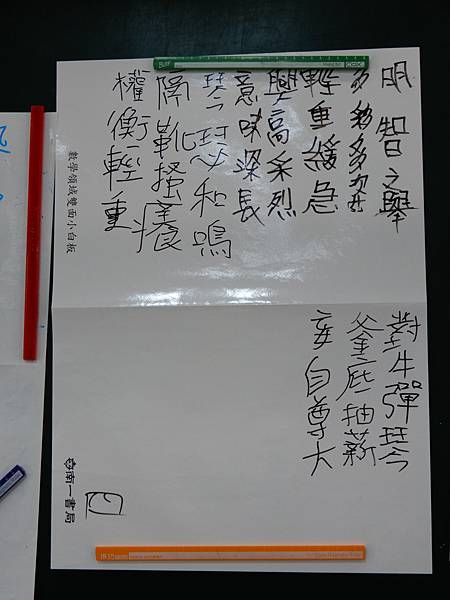 明智之舉
輕重緩急
興高采烈
意味深長
琴瑟和鳴
隔靴搔癢
權衡輕重
對牛彈琴
釜底抽薪
妄自尊大
數學領域雙面小白板
南一書局
四